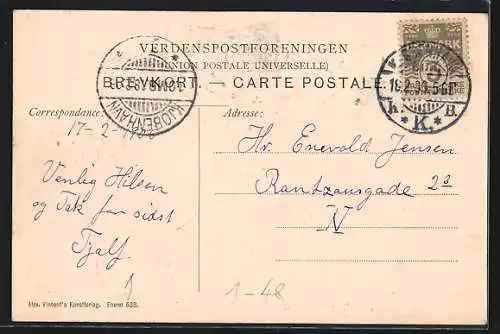 VERDENSPOSTFORENINGEN
(UNION POSTALE UNIVERSELLE)
BREVKORT. — CARTE POSTALE.
KJØBENHAVN
K. * K. * B.
Correspondance:
Adresse:
17-2-
Venlig Hilsen
og Tak for sidst
Tjalf.
Hr. Enevold Jensen
Rantzausgade 2
N
1-48
Alex. Vincent's Kunstforlag. Eneret 533.